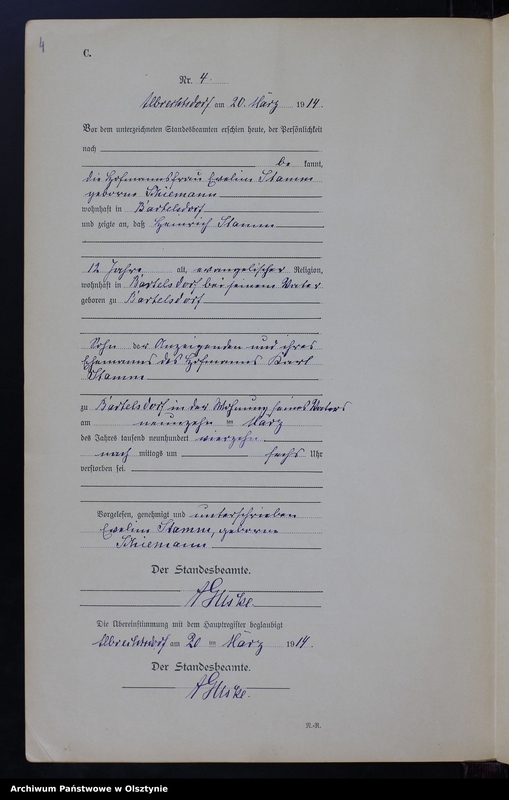 4
C.
Nr. 4.
Albrechtsdorf am 20. März 1914.
Vor dem unterzeichneten Standesbeamten erschien heute, der Persönlichkeit
nach
be kannt,
die Hofmannsfrau Evelin Stamm
geborne Thiemann
wohnhaft in Bartelsdorf
und zeigte an, daß Heinrich Stamm
12 Jahre alt, evangelischer Religion,
wohnhaft in Bartelsdorf bei seinem Vater
geboren zu Bartelsdorf
Sohn der Anzeigenden und ihres
Ehemannes des Hofmanns Karl
Stamm
zu Bartelsdorf in der Wohnung seines Vaters
am neunzehn im März
des Jahres tausend neunhundert vierzehn
nach mittags um sechs Uhr
verstorben sei.
Vorgelesen, genehmigt und unterschrieben
Evelin Stamm, geborne
Thiemann
Der Standesbeamte.
Die Übereinstimmung mit dem Hauptregister beglaubigt
Albrechtsdorf am 20 im März 1914.
Der Standesbeamte.
N.-R.
Archiwum Państwowe w Olsztynie